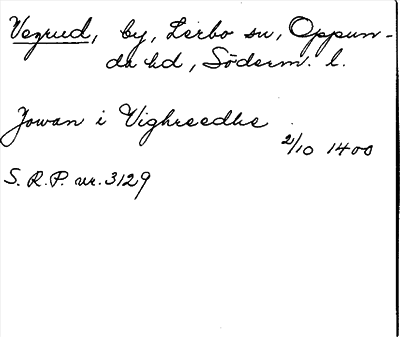 Vegrud, by, Lerbo sn, Oppun-
da hd, Söderm. l.
Jowan i Vighreedhe
2/10 1400
S. R. P. nr. 3129